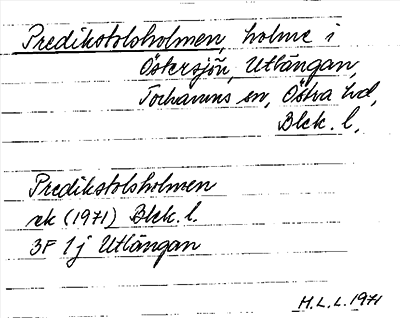 Predikstolsholmen, holme i
Östersjön, Utlängan,
Torhamns sn, Östra hd,
Blek. l.
Predikstolsholmen
ek (1971) Blek. l.
3F 1j Utlängan
H.L.L. 1971